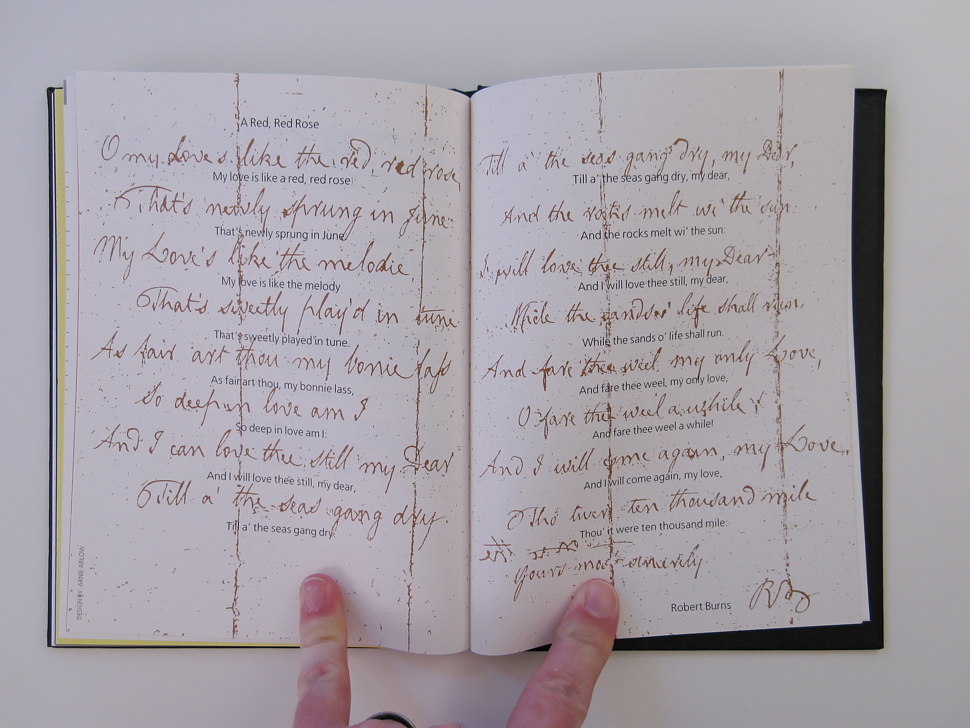 A Red, Red Rose
O my Love's like the red, red rose,
My love is like a red, red rose
That's newly sprung in June:
That's newly sprung in June:
My Love's like the melodie,
My love is like the melody
That's sweetly play'd in tune
That's sweetly played in tune.
As fair art thou my bonie lass
As fair art thou, my bonnie lass,
So deep in love am I
So deep in love am I:
And I can love thee still my Dear
And I will love thee still, my dear,
Till a' the seas gang dry.
Till a' the seas gang dry.
DESIGN BY ARNIE ARLOW
Till a' the seas gang dry, my Dear,
Till a' the seas gang dry, my dear,
And the rocks melt wi' the sun:
And the rocks melt wi' the sun:
I will love thee still, my Dear
And I will love thee still, my dear,
While the sands o' life shall run.
While the sands o' life shall run.
And fare thee weel my only Love,
And fare thee weel, my only love,
O fare thee weel a while!
And fare thee weel a while!
And I will come again, my Love,
And I will come again, my love,
Tho' twere ten thousand mile
Thou' it were ten thousand mile:
Yours most sincerely
Robert Burns RB